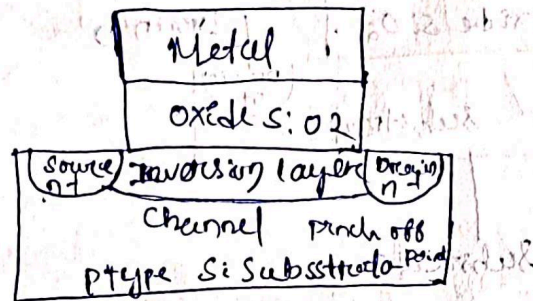 Metal
Oxide SiO2
Source Inversion layer Drain
n+ n+
Channel Pinch off
Ptype Si Subsstrate point